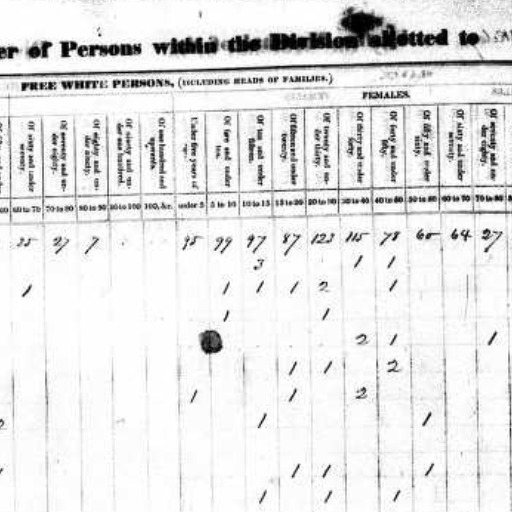 er of Persons within the Division allotted to
FREE WHITE PERSONS, (INCLUDING HEADS OF FAMILIES.)
FEMALES.
Of sixty and under seventy.
Of seventy and under eighty.
Of eighty and under ninety.
Of ninety and under one hundred.
Of one hundred and upwards.
Under five years of age.
Of five and under ten.
Of ten and under fifteen.
Of fifteen and under twenty.
Of twenty and under thirty.
Of thirty and under forty.
Of forty and under fifty.
Of fifty and under sixty.
Of sixty and under seventy.
Of seventy and under eighty.
60 60 to 70 70 to 80 80 to 90 90 to 100 100, &c. under 5 5 to 10 10 to 15 15 to 20 20 to 30 30 to 40 40 to 50 50 to 60 60 to 70 70 to 80
27 7 95 99 97 87 123 115 78 60 64 27
3 1 1
1 1 1 1 2 1
1 1
2 1 1
1 1 2
1 1 2
1 1
1 1 1 1
1 1 1